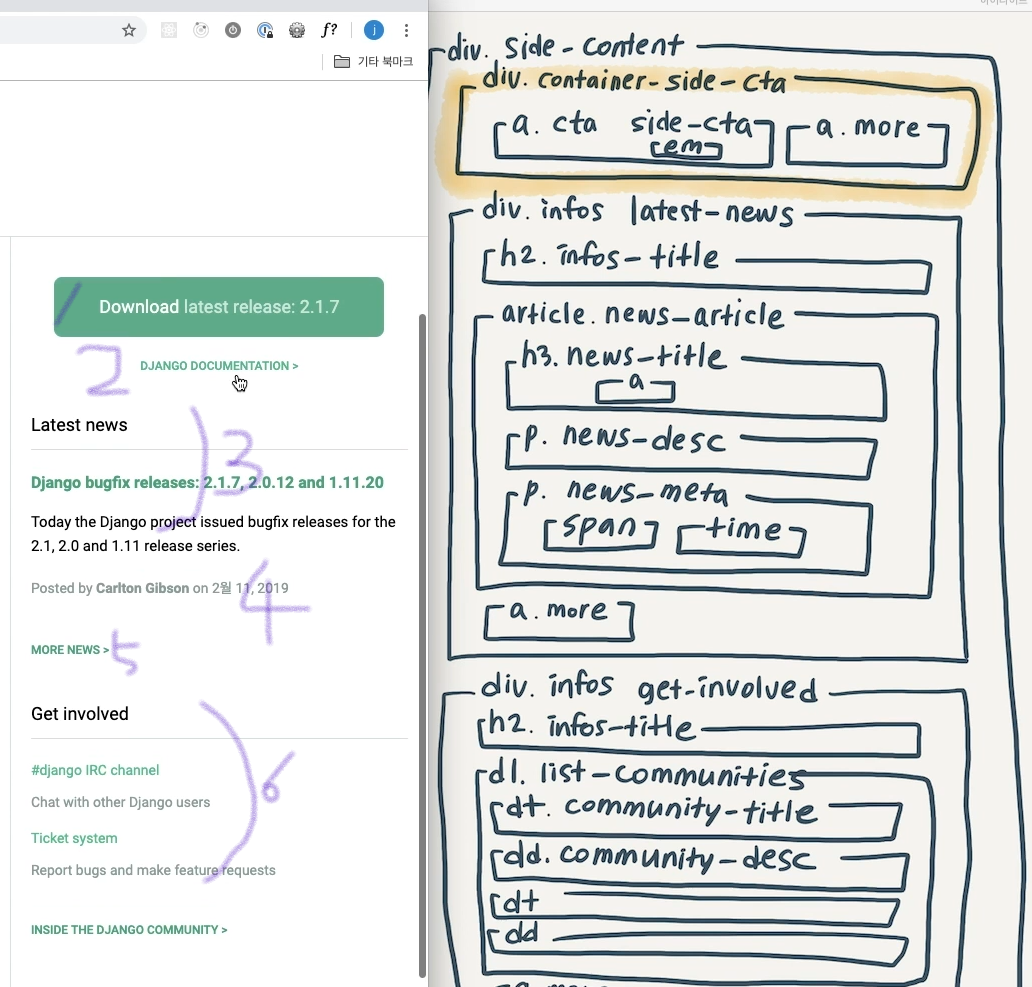 f?
j
기타 북마크
Download latest release: 2.1.7
2
DJANGO DOCUMENTATION >
Latest news
3
Django bugfix releases: 2.1.7, 2.0.12 and 1.11.20
Today the Django project issued bugfix releases for the
2.1, 2.0 and 1.11 release series.
4
Posted by Carlton Gibson on 2월 11, 2019
MORE NEWS >
5
Get involved
6
#django IRC channel
Chat with other Django users
Ticket system
Report bugs and make feature requests
INSIDE THE DJANGO COMMUNITY >
div. side-content
div. container-side-cta
a. cta side-cta
em
a. more
div. infos latest-news
h2. infos-title
article. news_article
h3. news-title
a
p. news-desc
p. news-meta
span
time
a. more
div. infos get-involved
h2. infos-title
dl. list-communities
dt. community-title
dd. community-desc
dt
dd